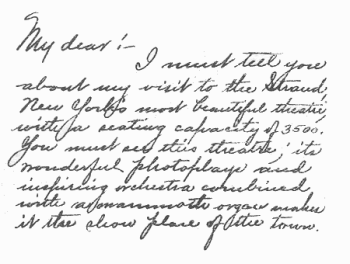 My dear :-
I must tell you
about my visit to the Strand,
New York's most beautiful theatre,
with a seating capacity of 3500.
You must see this theatre; its
wonderful photoplays and
inspiring orchestra combined
with a mammoth organ makes
it the show place of the town.